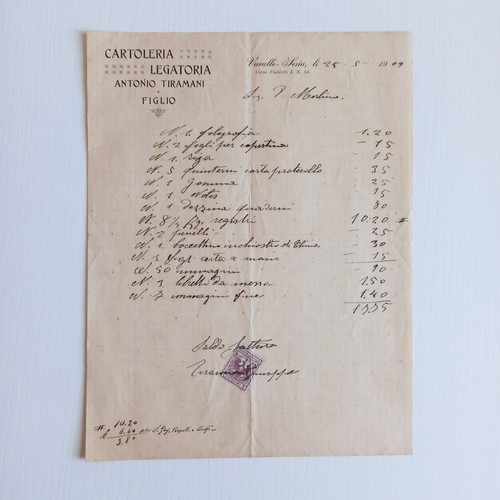 CARTOLERIA
LEGATORIA
ANTONIO TIRAMANI
E
FIGLIO
Varallo-Sesia, li 25-5-1909
Corso Umberto I, N. 54.
Sig. P. Merlino.
N. 1 fotografia 1.20
N. 2 fogli per copertina - 15
N. 1 riga - 15
N. 5 quinterni carta protocollo 35
N. 1 gomma 25
N. 1 Notes 15
N. 1 dozzina quaderni 80
N. 8½ Kg. registri 10.20 #
N. 2 penelli - 25
N. 1 boccettino inchiostro di China - 30
N. 3 fogli carta a mano - 15
N. 50 immagini - 90
N. 3 libretti da messa 1.50
N. 7 immagini fine 1.40
Saldo fattura
Tiramani Giuseppe
# 10.20
6.40
3.80